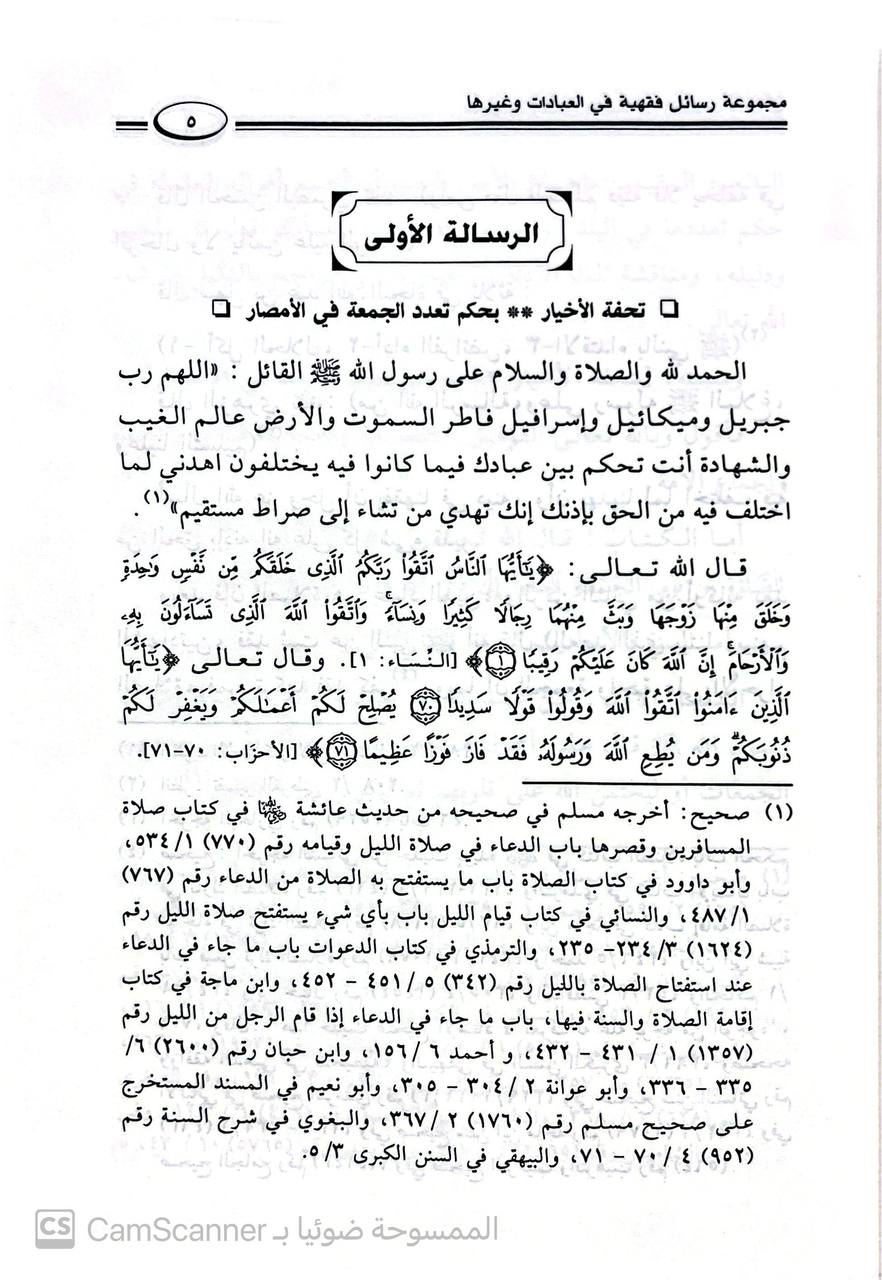 مجموعة رسائل فقهية في العبادات وغيرها
٥
الرسالة الأولى
❑ تحفة الأخيار ** بحكم تعدد الجمعة في الأمصار ❑
الحمد لله والصلاة والسلام على رسول الله ﷺ القائل: «اللهم رب
جبريل وميكائيل وإسرافيل فاطر السموت والأرض عالم الغيب
والشهادة أنت تحكم بين عبادك فيما كانوا فيه يختلفون اهدني لما
اختلف فيه من الحق بإذنك إنك تهدي من تشاء إلى صراط مستقيم»(١).
قال الله تعالى: ﴿يَٰٓأَيُّهَا ٱلنَّاسُ ٱتَّقُوا۟ رَبَّكُمُ ٱلَّذِى خَلَقَكُم مِّن نَّفْسٍ وَٰحِدَةٍ
وَخَلَقَ مِنْهَا زَوْجَهَا وَبَثَّ مِنْهُمَا رِجَالًا كَثِيرًا وَنِسَآءً ۚ وَٱتَّقُوا۟ ٱللَّهَ ٱلَّذِى تَسَآءَلُونَ بِهِۦ
وَٱلْأَرْحَامَ ۚ إِنَّ ٱللَّهَ كَانَ عَلَيْكُمْ رَقِيبًا ١﴾ [النِّسَاء: ١]. وقال تعالى ﴿يَٰٓأَيُّهَا
ٱلَّذِينَ ءَامَنُوا۟ ٱتَّقُوا۟ ٱللَّهَ وَقُولُوا۟ قَوْلًا سَدِيدًا ٧٠ يُصْلِحْ لَكُمْ أَعْمَٰلَكُمْ وَيَغْفِرْ لَكُمْ
ذُنُوبَكُمْ ۗ وَمَن يُطِعِ ٱللَّهَ وَرَسُولَهُۥ فَقَدْ فَازَ فَوْزًا عَظِيمًا ٧١﴾ [الأحزَاب: ٧٠-٧١].
(١) صحيح: أخرجه مسلم في صحيحه من حديث عائشة رضي الله عنها في كتاب صلاة
المسافرين وقصرها باب الدعاء في صلاة الليل وقيامه رقم (٧٧٠) ١/ ٥٣٤،
وأبو داوود في كتاب الصلاة باب ما يستفتح به الصلاة من الدعاء رقم (٧٦٧)
١/ ٤٨٧، والنسائي في كتاب قيام الليل باب بأي شيء يستفتح صلاة الليل رقم
(١٦٢٤) ٣/ ٢٣٤- ٢٣٥، والترمذي في كتاب الدعوات باب ما جاء في الدعاء
عند استفتاح الصلاة بالليل رقم (٣٤٢) ٥ /٤٥١ - ٤٥٢، وابن ماجة في كتاب
إقامة الصلاة والسنة فيها، باب ما جاء في الدعاء إذا قام الرجل من الليل رقم
(١٣٥٧) ١ / ٤٣١ - ٤٣٢، و أحمد ٦ /١٥٦، وابن حبان رقم (٢٦٠٠) ٦/
٣٣٥ - ٣٣٦، وأبو عوانة ٢ /٣٠٤ - ٣٠٥، وأبو نعيم في المسند المستخرج
على صحيح مسلم رقم (١٧٦٠) ٢ /٣٦٧، والبغوي في شرح السنة رقم
(٩٥٢) ٤ /٧٠ - ٧١، والبيهقي في السنن الكبرى ٣/ ٥.
CS الممسوحة ضوئيا بـ CamScanner